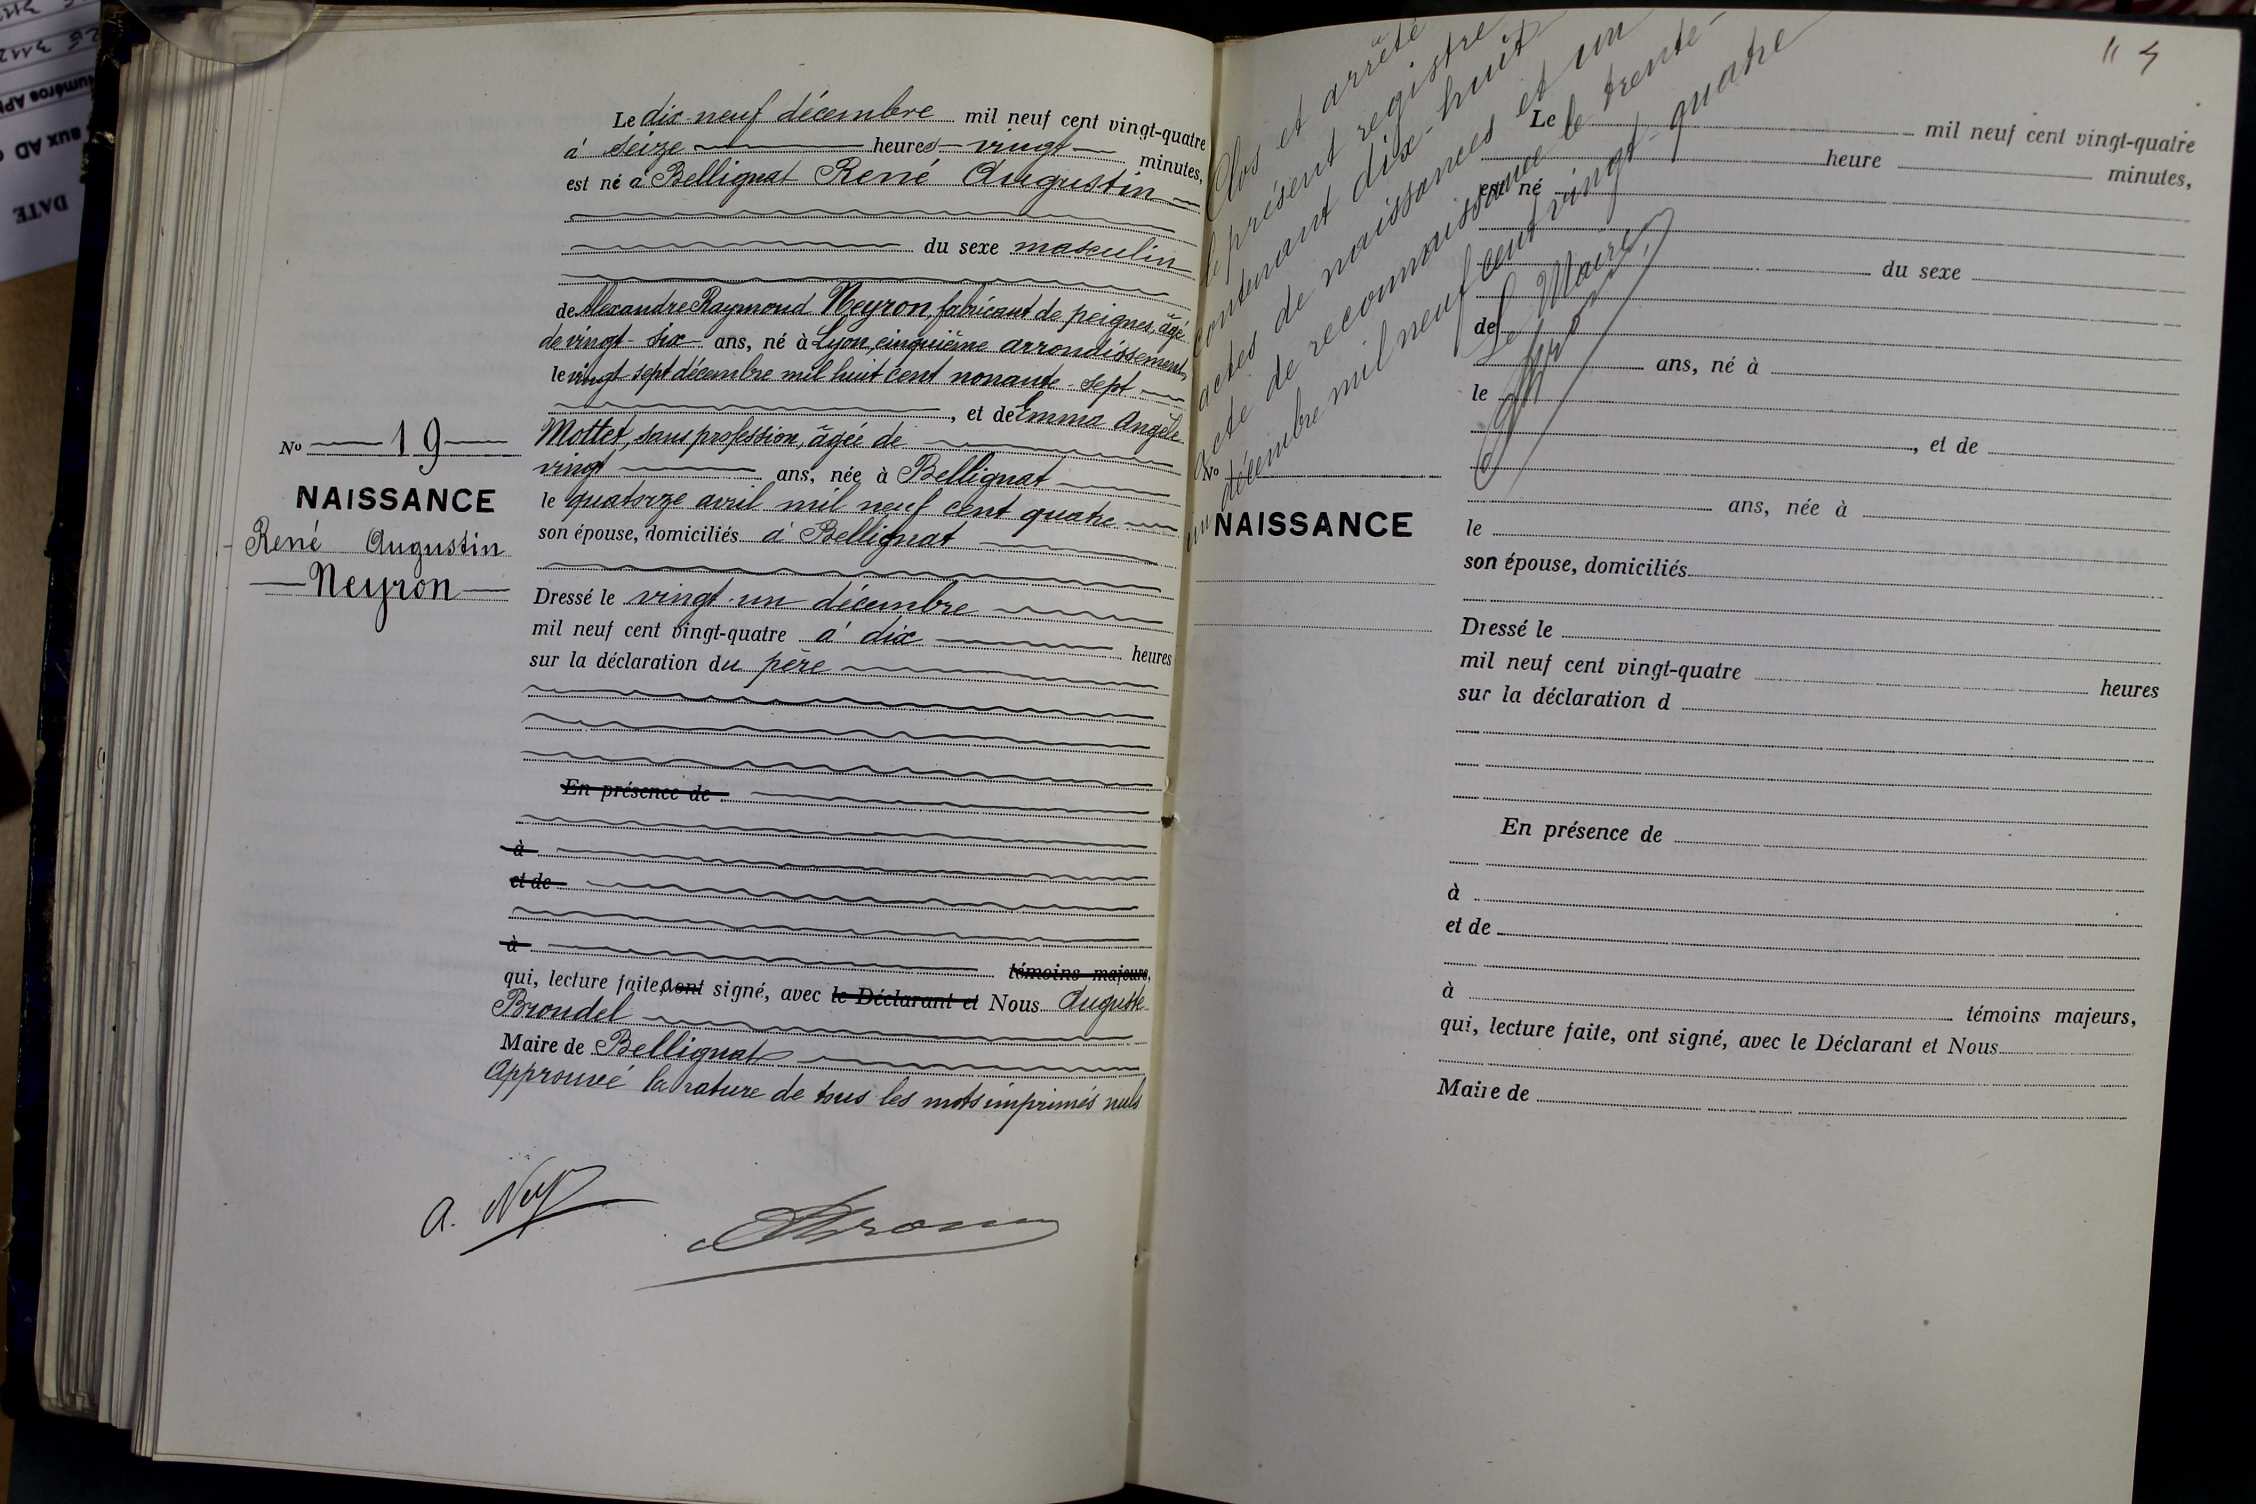 Le dix-neuf décembre mil neuf cent vingt-quatre
à seize heures vingt minutes,
est né à Bellignat René Augustin
du sexe masculin
de Alexandre Raymond Neyron, fabricant de peignes, âgé
de vingt-six ans, né à Lyon, cinquième arrondissement
le vingt sept décembre mil huit cent nonante-sept
, et de Emma Angèle
Mottet, sans profession, âgée de
vingt ans, née à Bellignat
le quatorze avril mil neuf cent quatre
son épouse, domiciliés à Bellignat
Dressé le vingt-un décembre
mil neuf cent vingt-quatre à dix heures
sur la déclaration du père
En présence de
à
et de
à témoins majeurs,
qui, lecture faite, a ont signé, avec le Déclarant et Nous Auguste
Brondel
Maire de Bellignat
Approuvé la rature de tous les mots imprimés nuls
No 19
NAISSANCE
René Augustin
Neyron
A. Ney
Clos et arrêté
le présent registre
contenant dix-huit
actes de naissances et un
acte de reconnaissance le trente
un décembre mil neuf cent vingt-quatre
Le Maire,
Le mil neuf cent vingt-quatre
heure minutes,
est né
du sexe
de
ans, né à
le
, et de
ans, née à
le
son épouse, domiciliés
Dressé le
mil neuf cent vingt-quatre heures
sur la déclaration d
En présence de
à
et de
à témoins majeurs,
qui, lecture faite, ont signé, avec le Déclarant et Nous
Maire de
No
NAISSANCE
DATE
aux AD